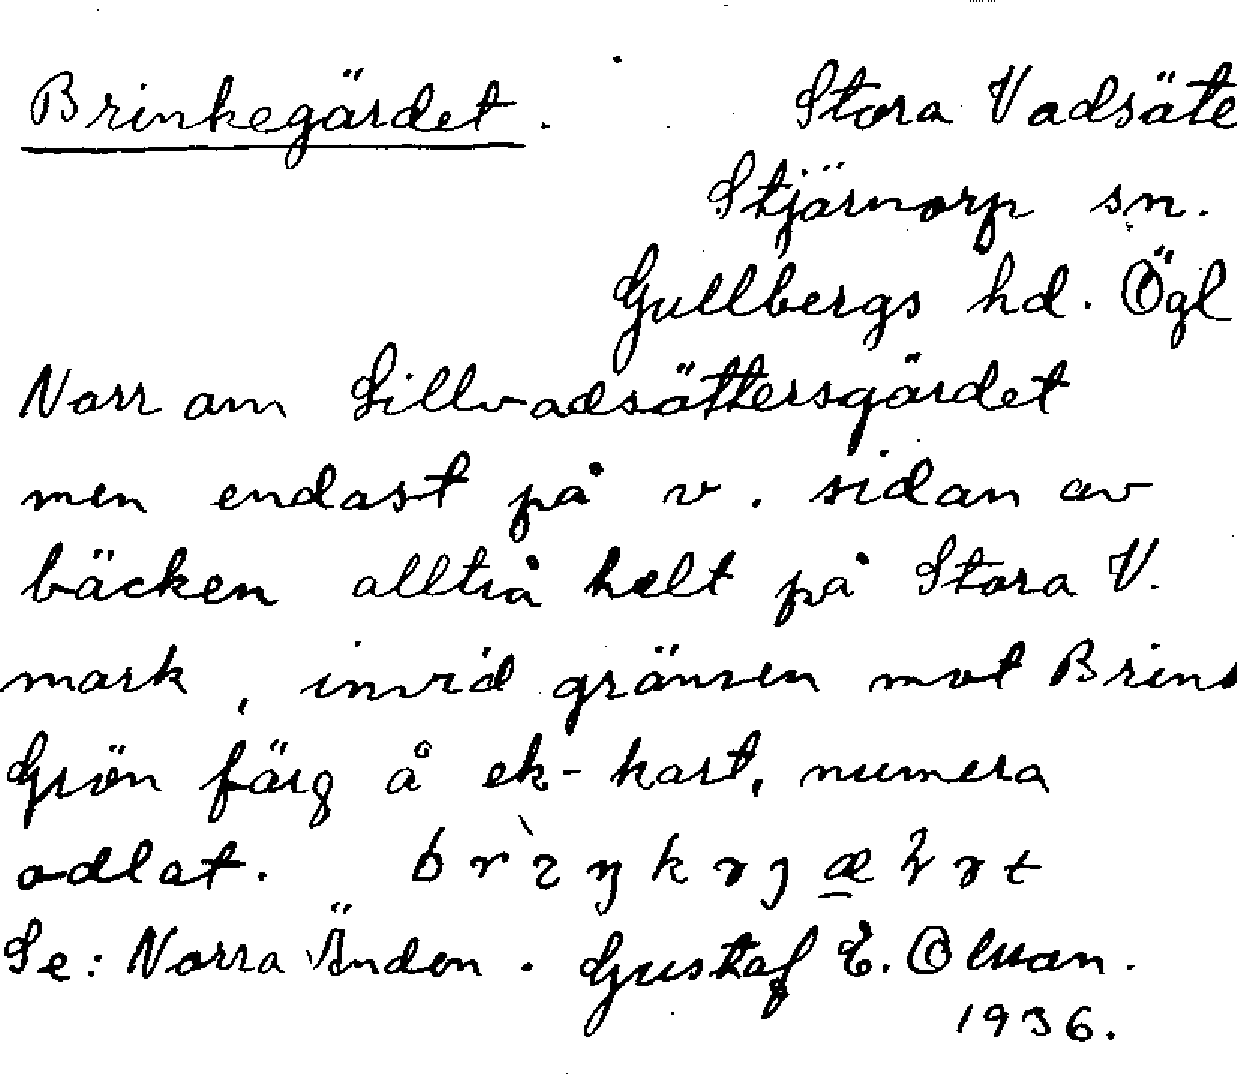 Brinkegärdet. Stora Vadsäte
Stjärnorp sn.
Gullbergs hd. Ögl
Norr om Lillvadsättersgärdet
men endast på v. sidan av
bäcken alltså helt på Stora V.
mark, invid gränsen mot Brink
Grön färg å ek-kart, numera
odlat.
Se: Norra Änden. Gustaf E. Olsson.
1936.